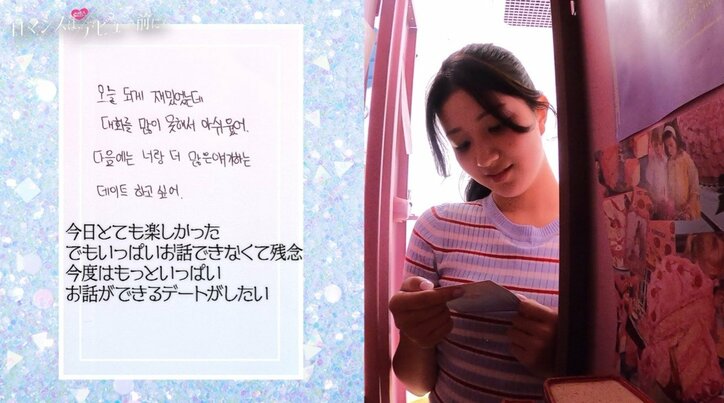 ロマンスは、デビュー前に
오늘 되게 재밌었는데
대화를 많이 못해서 아쉬웠어.
다음에는 너랑 더 많은얘기하는
데이트 하고 싶어.
今日とても楽しかった
でもいっぱいお話できなくて残念
今度はもっといっぱい
お話ができるデートがしたい